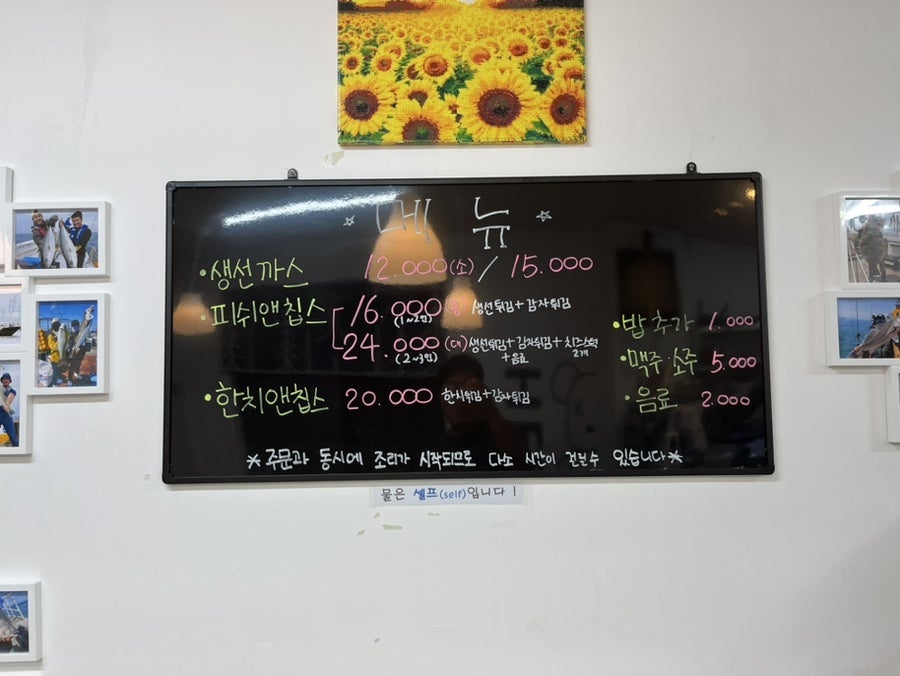 메뉴
·생선까스 12.000(소) / 15.000
·피쉬앤칩스 16.000 생선튀김+감자튀김
(1~2인)
24.000 (대) 생선튀김+감자튀김+치즈스틱 2개
(2~3인) +음료
·한치앤칩스 20.000 한치튀김+감자튀김
·밥추가 1.000
·맥주·소주 5.000
·음료 2.000
*주문과 동시에 조리가 시작되므로 다소 시간이 걸릴수 있습니다*
물은 셀프(self)입니다!